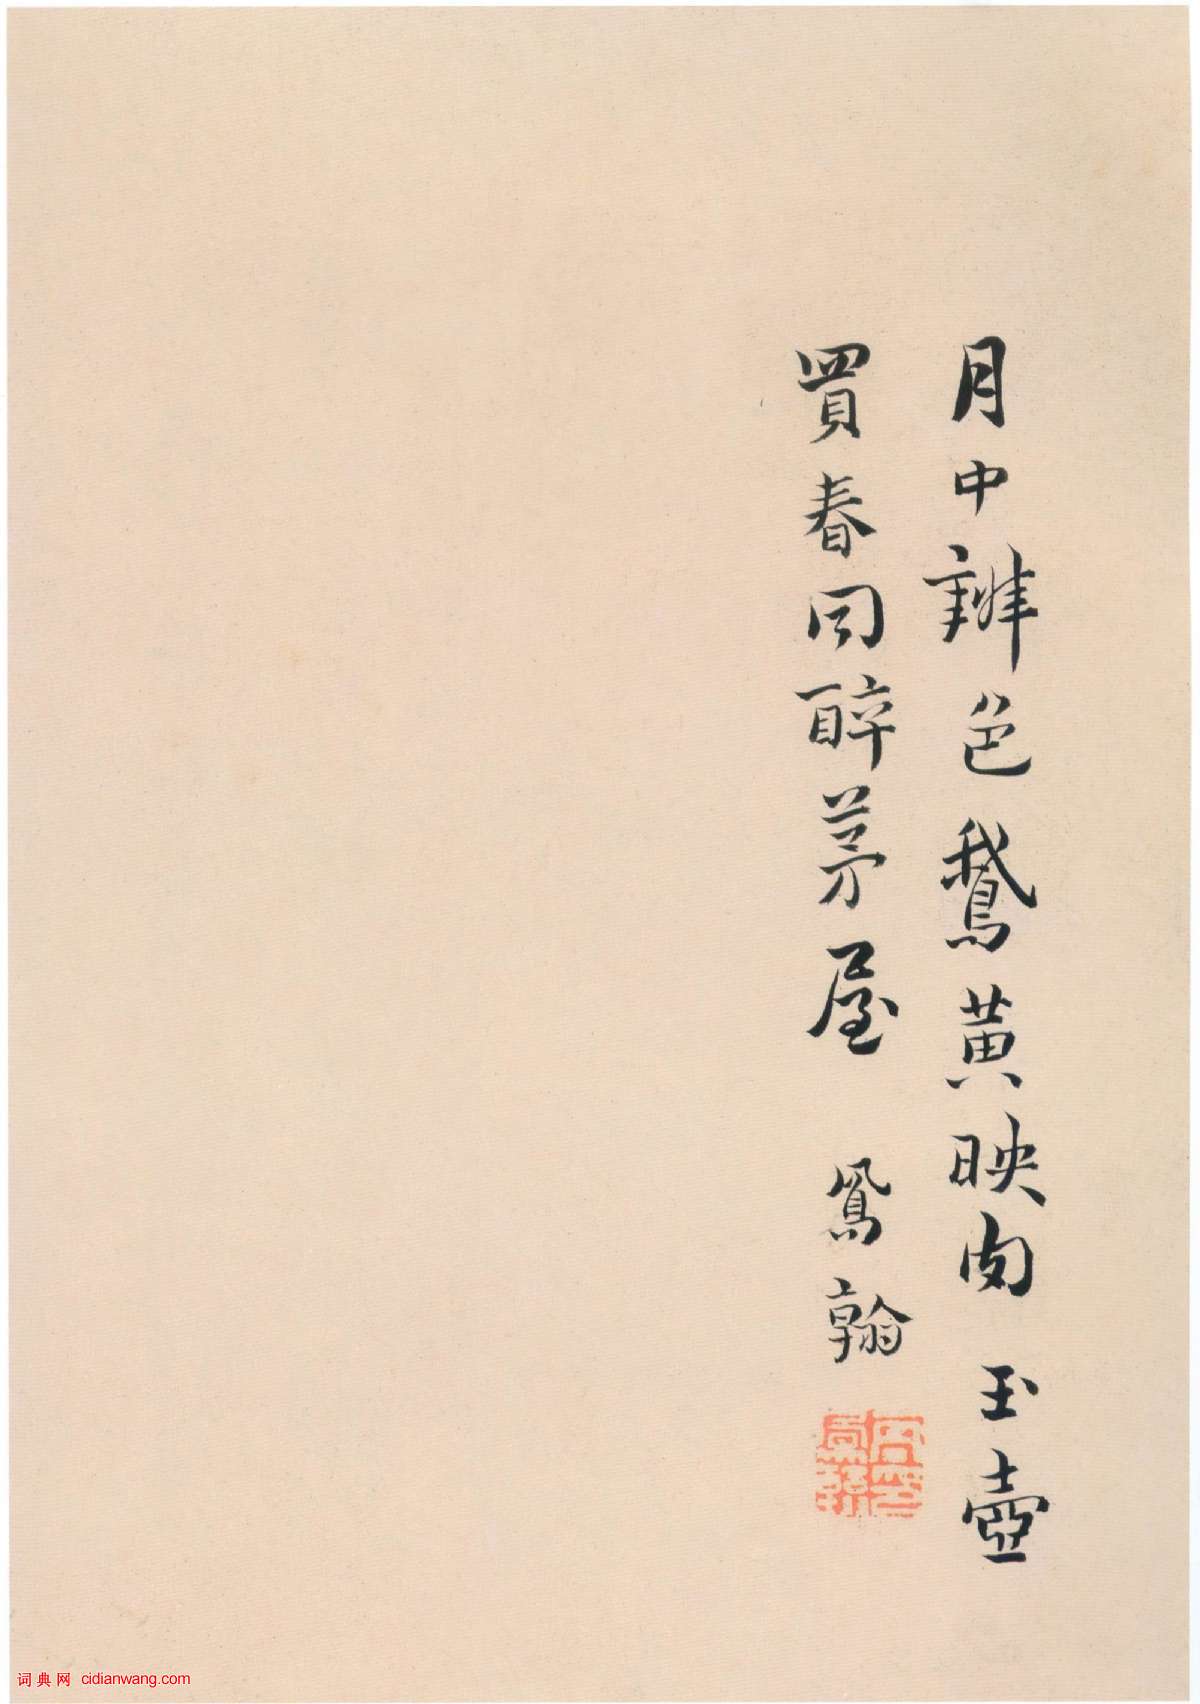 月中辨色鵞黃映肉玉壺
買春同醉茅屋 鳳翰
词典网 cidianwang.com